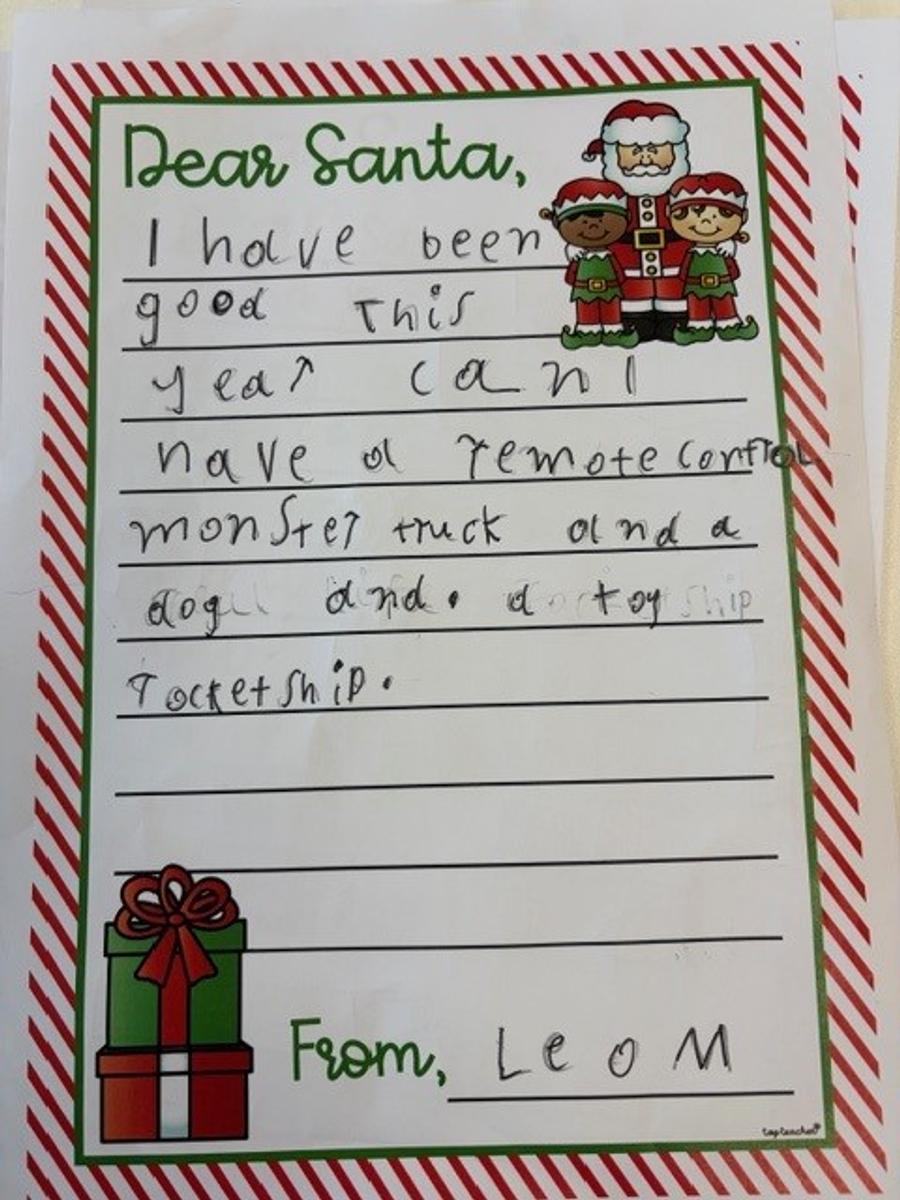 Dear Santa,
I have been
good this
year can I
have a remote control
monster truck and a
dog and. a toy ship
rocketship.
From, Leo M